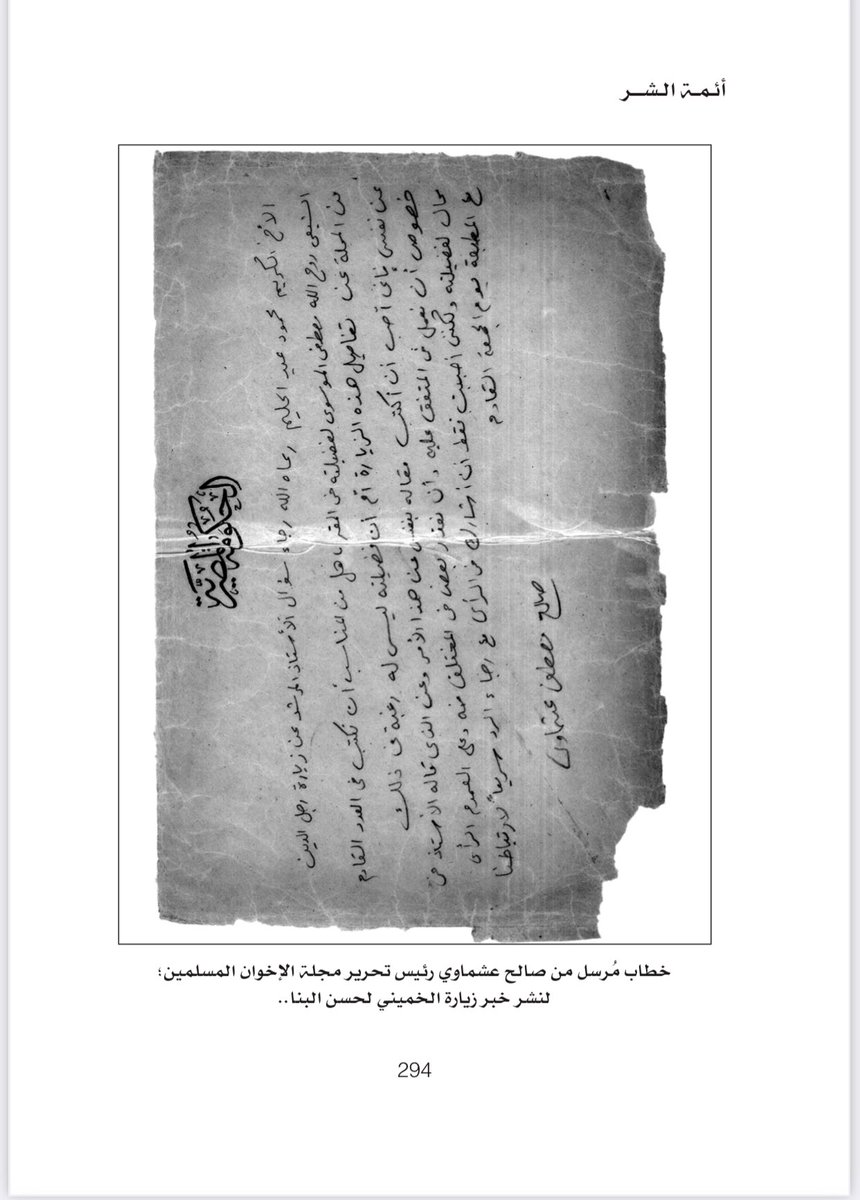 أئمة الشر
الحكومة المصرية
الأخ الكريم محمود عبد الحليم رعاه الله رجاء سؤال الأستاذ المرشد عن زيارة رجل الدين
الشيعى روح الله مصطفى الموسوى لفضيلته فى المقر هل من المناسب أن نكتب فى العدد القادم
من المجلة عن تفاصيل هذه الزيارة أم أن فضيلته ليس له رغبة فى ذلك
عن نفسى فإنى أحب أن أكتب مقاله بنفسى عن هذا الأمر وعن الذى قاله الأستاذ فى
خصوص أن نعمل فى المتفق عليه وأن نعذر بعض فى المختلف فيه وعلى العموم الرأى
بحال لفضيلته ولكنى أحببت فقط ان أشارك فى الرأى مع رجاء الرد سريعاً لارتباطنا
مع المطبعة يوم الجمعة القادم
صالح مصطفى عشماوى
خطاب مُرسل من صالح عشماوي رئيس تحرير مجلة الإخوان المسلمين؛
لنشر خبر زيارة الخميني لحسن البنا..
294